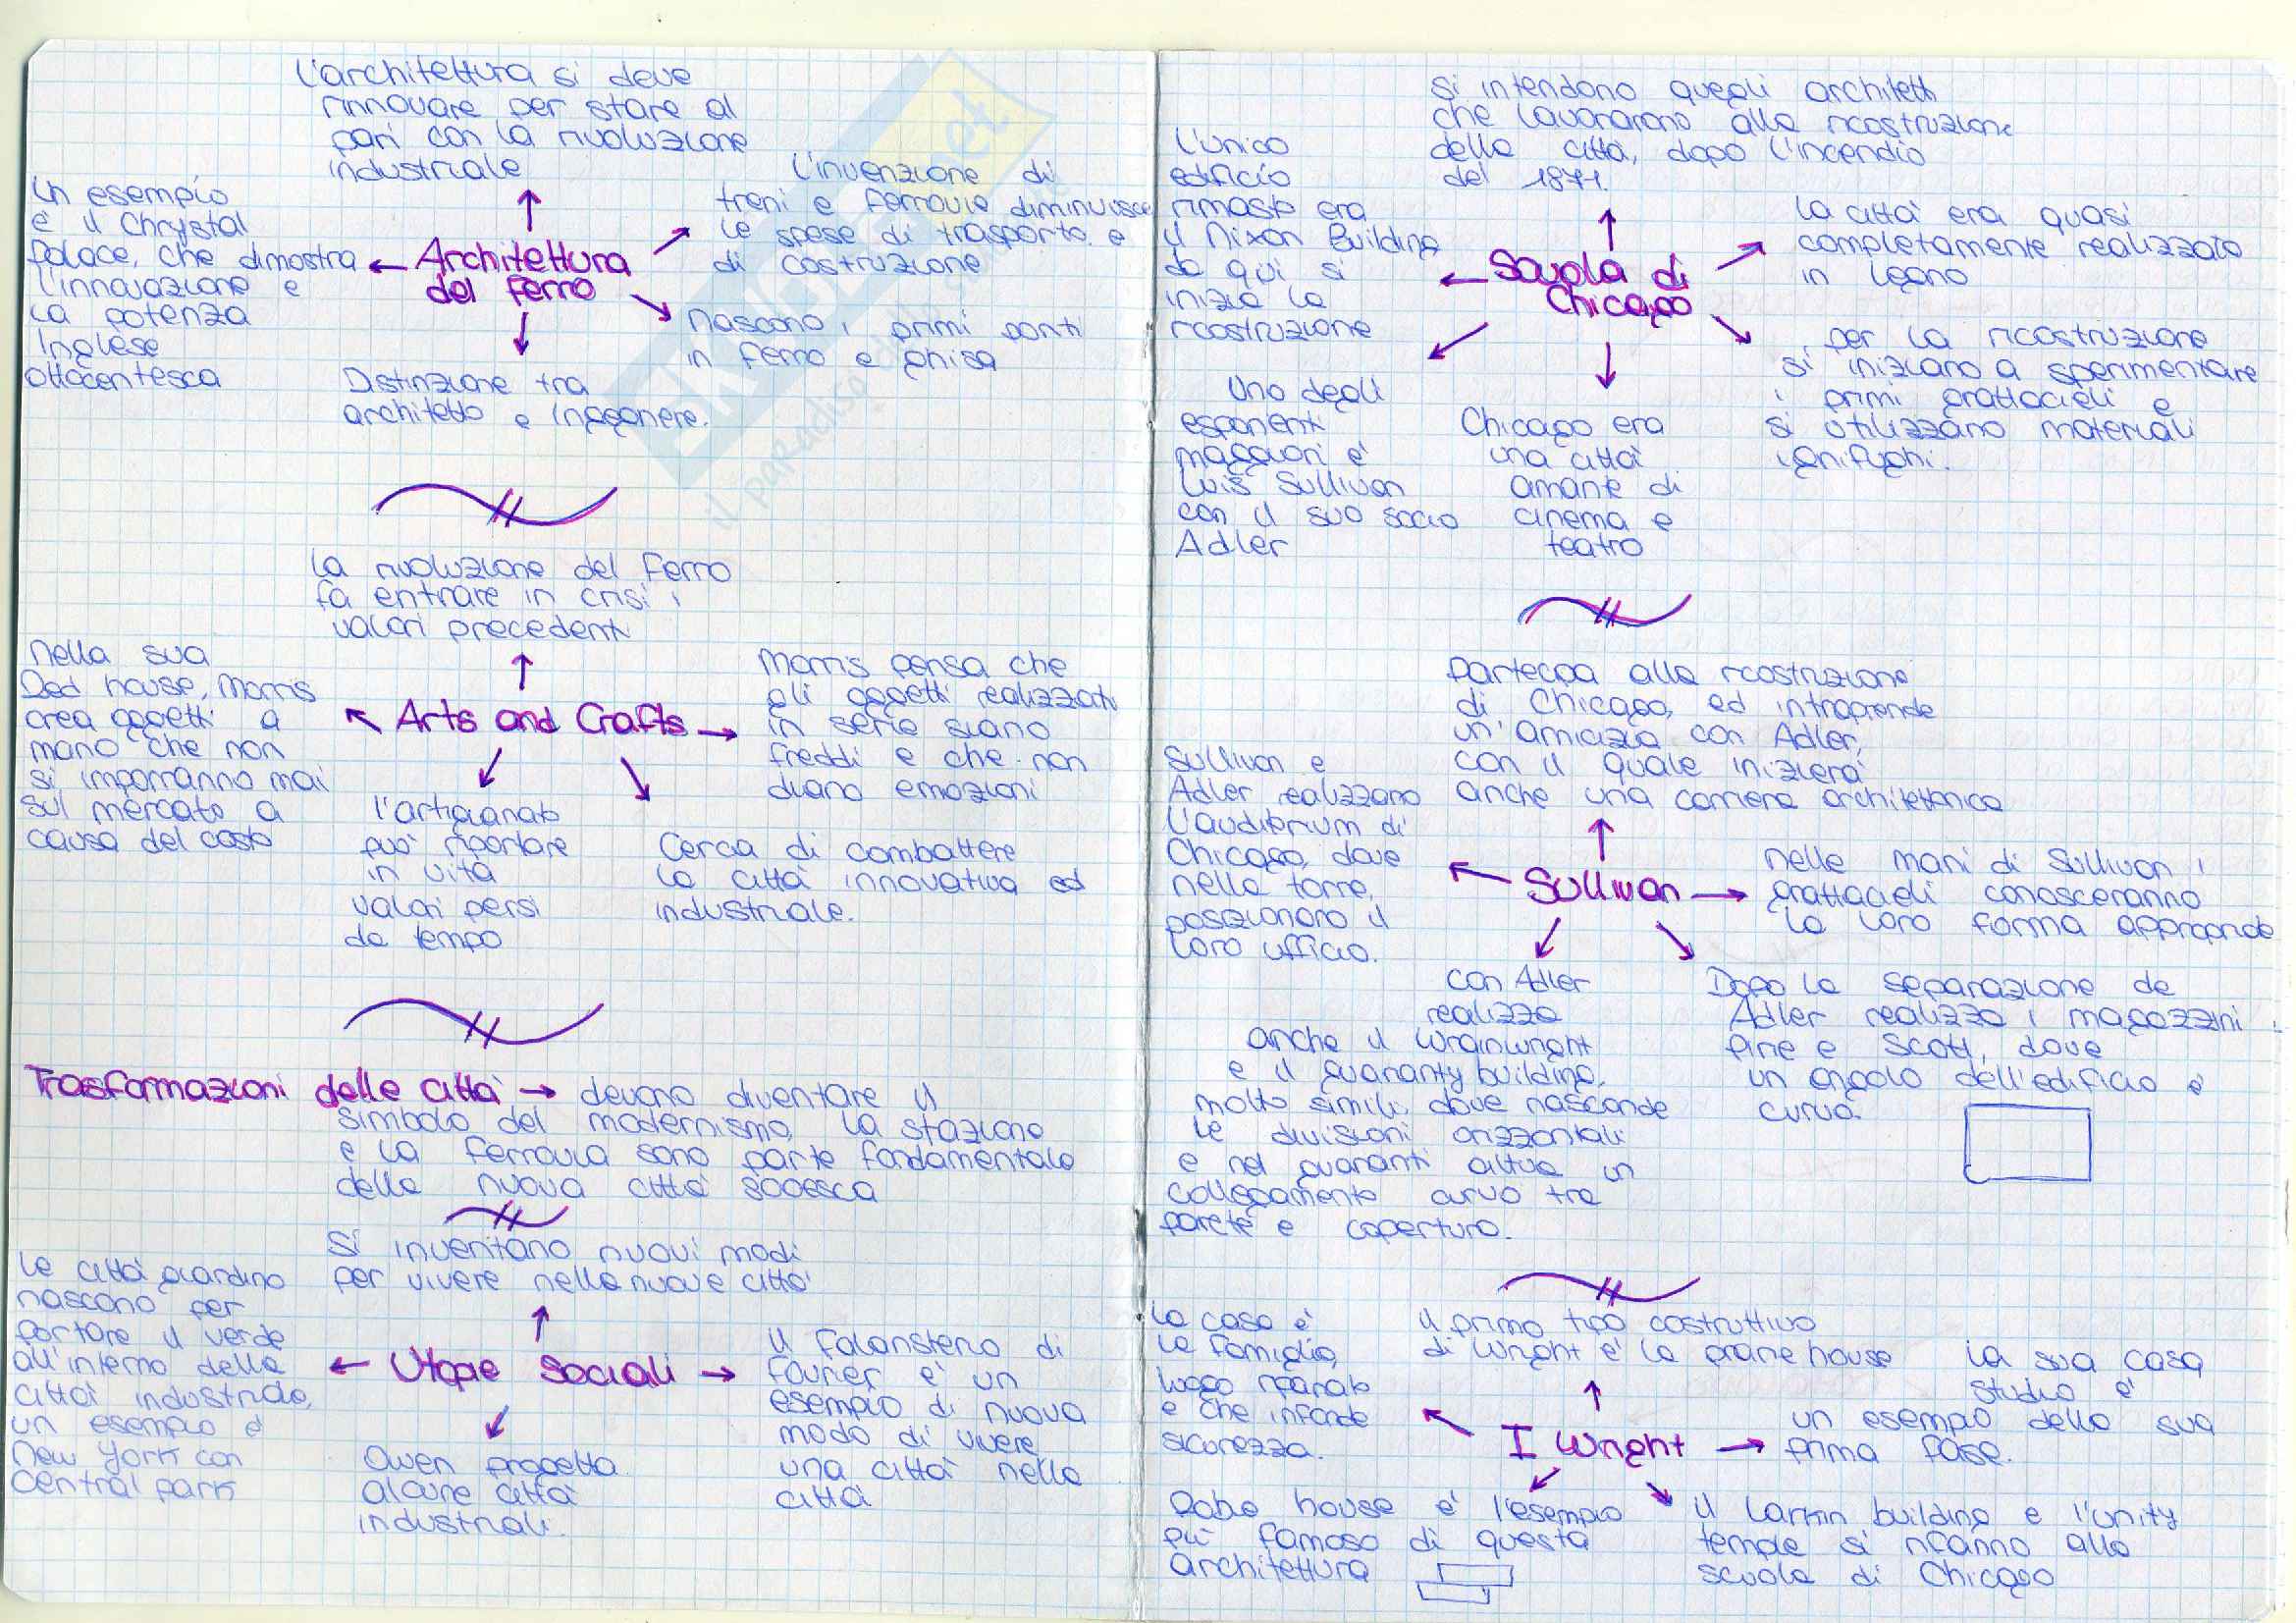 L'architettura si deve
rinnovare per stare al
pari con la rivoluzione
industriale
Un esempio
è il Chrystal
Palace, che dimostra
l'innovazione e
la potenza
Inglese
ottocentesca
Architettura
del ferro
L'invenzione di
treni e ferrovie diminuisce
le spese di trasporto e
di costruzione
nascono i primi ponti
in ferro e ghisa
Distinzione tra
architetto e Ingegnere.
La rivoluzione del ferro
fa entrare in crisi i
valori precedenti
Nella sua
Red house, Morris
crea oggetti a
mano che non
si imporranno mai
sul mercato a
causa del costo
Arts and Crafts
Morris pensa che
gli oggetti realizzati
in serie siano
freddi e che non
diano emozioni
l'artigianato
può riportare
in vita
valori persi
da tempo
Cerca di combattere
la città innovativa ed
industriale.
Trasformazioni delle città → devono diventare il
simbolo del modernismo, la stazione
e la ferrovia sono parte fondamentale
della nuova città
Si inventano nuovi modi
per vivere nella nuove città
Le città giardino
nascono per
portare il verde
all'interno della
città industriale,
un esempio è
New York con
Central park
Utopie sociali
Il falansterio di
Fourier è un
esempio di nuova
modo di vivere
una città nella
città
Owen progetta
alcune città
industriali.
si intendono quegli architetti
che lavorarono alla ricostruzione
della città, dopo l'incendio
del 1871.
L'unico
edificio
rimasto era
il Nixon Building
da qui si
inizia la
ricostruzione
Scuola di
Chicago
La città era quasi
completamente realizzata
in legno
per la ricostruzione
si iniziano a sperimentare
i primi grattacieli e
si utilizzano materiali
ignifughi.
Uno degli
esponenti
maggiori è
Luis Sullivan
con il suo socio
Adler
Chicago era
una città
amante di
cinema e
teatro
Partecipa alla ricostruzione
di Chicago, ed intraprende
un'amicizia con Adler,
con il quale inizierà
anche una carriera architettonica
Sullivan e
Adler realizzano
L'auditorium di
Chicago, dove
nella torre,
posizionano il
loro ufficio.
Sullivan
nelle mani di Sullivan i
grattacieli conosceranno
la loro forma appropriata
con Adler
realizza
anche il Wrainwright
e il guaranty building,
molto simili, dove nasconde
le divisioni orizzontali
e nel guaranti attua un
collegamento curvo tra
parete e copertura.
Dopo la separazione da
Adler realizza i magazzini
Pirie e Scott, dove
un angolo dell'edificio è
curvo.
La casa è
la famiglia,
luogo riparato
e che infonde
sicurezza.
Il primo tipo costruttivo
di Wright è la prairie house
I Wright
La sua casa
studio è
un esempio della sua
prima fase.
Robie house è l'esempio
più famoso di questa
architettura
Il Larkin building e l'unity
temple si rifanno alla
scuola di Chicago